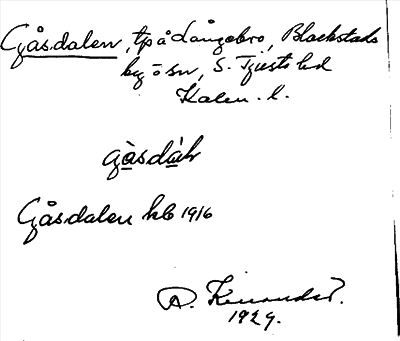 Gåsdalen, tp å Långebro, Blackstads
by o sn, S. Tjusts hd
Kalm. l.
gåsdaḷn
Gåsdalen kb 1916
A. Kinander.
1929.